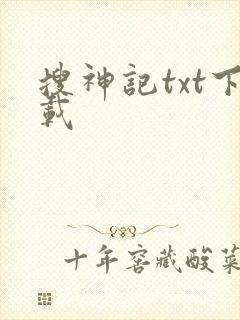 搜神記txt下
載
十年窖藏酸菜